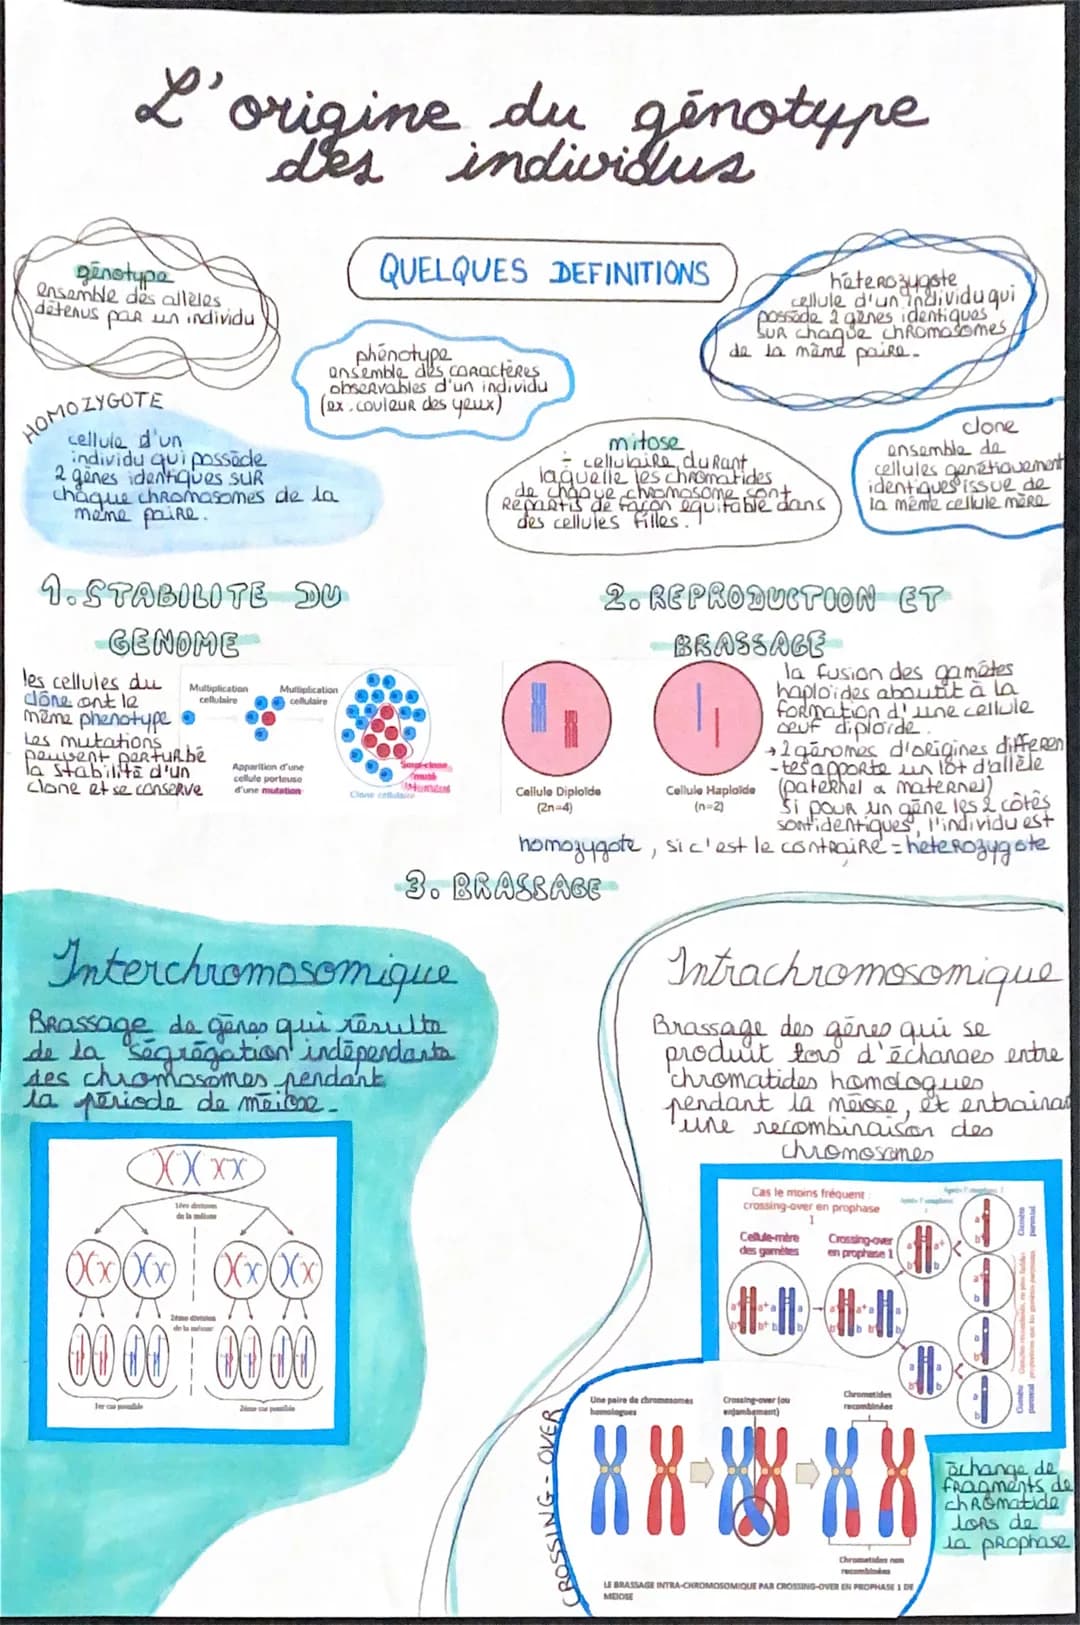 L'origine du génotype
des individus
QUELQUES DEFINITIONS
génotype
ensemble des allèles
détenus par un individu
phénotype
ensemble des caractères
observables d'un individu
(ex. couleur des yeux)
hétérozygote
cellule d'un individu qui
possède 2 gènes identiques
sur chaque chromosomes
de la même paire.
HOMOZYGOTE
cellule d'un
individu qui possède
2 gènes identiques sur
chaque chromosomes de la
même paire.
mitose
÷ cellulaire durant
laquelle les chromatides
de chaque chromosome sont
répartis de façon équitable dans
des cellules filles.
clone
ensemble de
cellules génétiquement
identiques issue de
la même cellule mère
1. STABILITE DU
GENOME
les cellules du
clône ont le
même phenotype
Les mutations
peuvent perturbé
la stabilité d'un
clone et se conserve
Multiplication
cellulaire
Multiplication
cellulaire
Apparition d'une
cellule porteuse
d'une mutation
Clone cellulaire
Sous-clone
muté
2. REPRODUCTION ET
BRASSAGE
Cellule Diploïde
(2n=4)
Cellule Haploïde
(n=2)
la fusion des gamètes
haploïdes aboutit à la
formation d'une cellule
oeuf diploïde.
→ 2 génomes d'origines différen
-tes apporte un lot d'allèle
(paternel & maternel)
Si pour un gène les 2 côtés
sont identiques, l'individu est
homozygote, si c'est le contraire = heterozygote
3. BRASSAGE
Interchromosomique
Brassage de gènes qui résulte
de la ségrégation indépendante
des chromosomes pendant
la période de méiose.
1ère division
de la méiose
2ème division
de la méiose
1er cas possible
2ème cas possible
Intrachromosomique
Brassage des gènes qui se
produit lors d'échanges entre
chromatides homologues
pendant la méiose, et entrainant
une recombinaison des
chromosomes
Cas le moins fréquent :
crossing-over en prophase
1
Cellule-mère
des gamètes
Crossing-over
en prophase 1
CROSSING-OVER
Une paire de chromosomes
homologues
Crossing-over (ou
enjambement)
Chromatides
recombinées
Chromatides non
recombinées
LE BRASSAGE INTRA-CHROMOSOMIQUE PAR CROSSING-OVER EN PROPHASE 1 DE
MEIOSE
échange de
fragments de
chromatide
lors de
la prophase